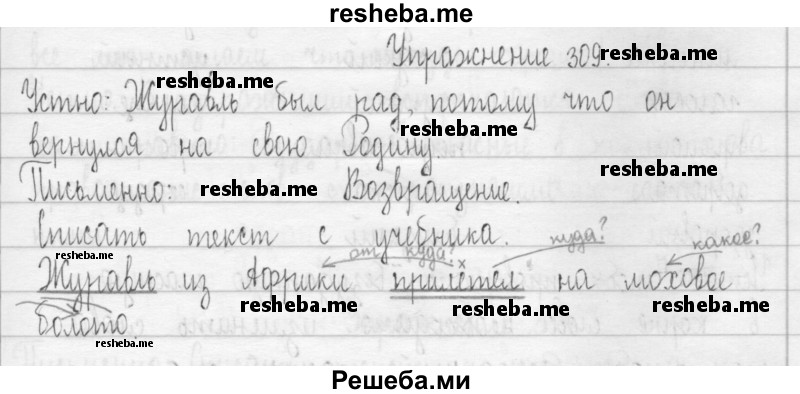 resheba.me
Упражнение 309.
resheba.me
resheba.me
Устно: Журавль был рад, потому что он
resheba.me
вернулся на свою Родину.
resheba.me
Письменно: resheba.me Возвращение.
вписать текст с учебника.
resheba.me
от куда? х куда? какое?
Журавль из Африки прилетел на моховое
resheba.me resheba.me resheba.me
болото.
resheba.me
Решеба.ми